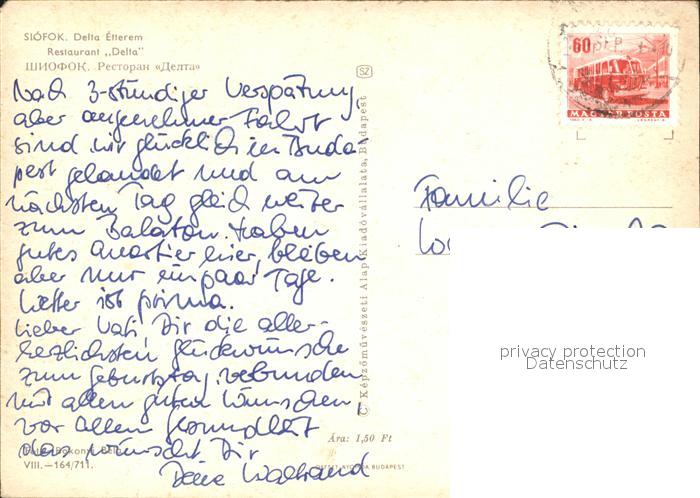 SIÓFOK. Delta Étterem
Restaurant „Delta"
ШИОФОК. Ресторан «Делта»
Nach 3-stündiger Verspätung
aber angenehmer Fahrt
sind wir glücklich in Buda
pest gelandet und am
nächsten Tag gleich weiter
zum Balaton. Haben
gutes Quartier hier, bleiben
aber nur ein paar Tage.
Wetter ist prima.
Lieber Vati, Dir die aller-
herzlichsten Glückwünsche
zum Geburtstag, verbunden
mit allen guten Wünschen,
vor allem Gesundheit
das wünscht Dir
Deine Waltraud
Bakonyi Béla
VIII.—164/711.
SZ
© Képzőművészeti Alap Kiadóvállalata, Budapest
Ára: 1,50 Ft
OFFSET-NYOMDA BUDAPEST
60
MAGYAR POSTA
Familie
privacy protection
Datenschutz